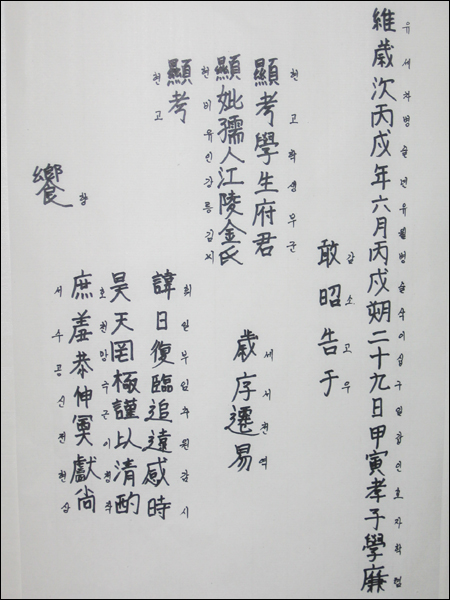 유세차병술년유월병술삭이십구일갑인효자학렴
維歲次丙戌年六月丙戌朔二十九日甲寅孝子學廉
감소고우
敢昭告于
현고학생부군
顯考學生府君
현비유인강릉김씨
顯妣孺人江陵金氏
현고
顯考
세서천역
歲序遷易
휘일부임추원감시
諱日復臨追遠感時
호천망극근이청작
昊天罔極謹以清酌
서수공신전헌상
庶羞恭伸奠獻尙
향
饗